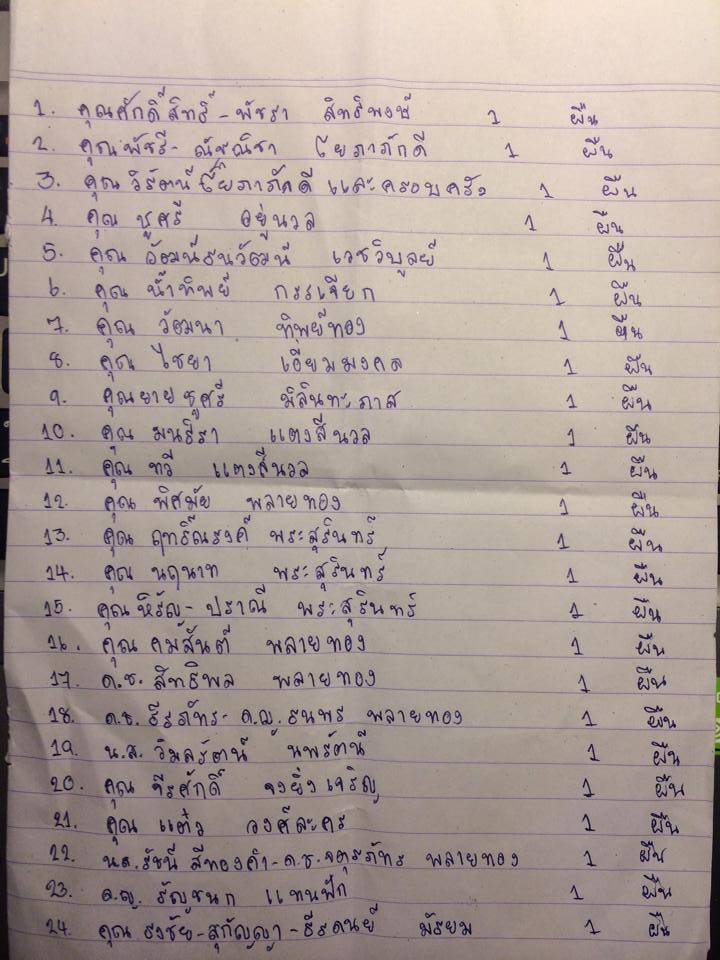 1. คุณศักดิ์สิทธิ์ - พัชรา สิทธิพงษ์ 1 ผืน
2. คุณพัชรี - ณัชณิชา โยภาภักดี 1 ผืน
3. คุณ วิรัตน์ โยภาภักดี และครอบครัว 1 ผืน
4. คุณ ชูศรี อยู่นวล 1 ผืน
5. คุณ วัฒน์ธนวัฒน์ เวชวิบูลย์ 1 ผืน
6. คุณ น้ำทิพย์ กรรเจียก 1 ผืน
7. คุณ วัฒนา ทิพย์ทอง 1 ผืน
8. คุณ ไชยา เอี่ยมมงคล 1 ผืน
9. คุณยายชูศรี มิลินทะภาส 1 ผืน
10. คุณ มนธิรา แตงสีนวล 1 ผืน
11. คุณ ทวี แตงสีนวล 1 ผืน
12. คุณ พิศมัย พลายทอง 1 ผืน
13. คุณ ฤทธิ์ณรงค์ พระสุรินทร์ 1 ผืน
14. คุณ นฤนาท พระสุรินทร์ 1 ผืน
15. คุณ หิรัญ - ปราณี พระสุรินทร์ 1 ผืน
16. คุณ คมสันต์ พลายทอง 1 ผืน
17. ด.ช. สิทธิพล พลายทอง 1 ผืน
18. ด.ช. ธีรภัทร - ด.ญ. ธนพร พลายทอง 1 ผืน
19. น.ส. วิมลรัตน์ นพรัตน์ 1 ผืน
20. คุณ จีรศักดิ์ จงยิ่งเจริญ 1 ผืน
21. คุณ แต๋ว วงศ์ละคร 1 ผืน
22. น.ส. รัชนี สีทองคำ - ด.ช. จตุรภัทร พลายทอง 1 ผืน
23. ด.ญ. ธัญชนก แทนฟัก 1 ผืน
24. คุณ ธงชัย - สุกัญญา - ธีรดนย์ มัธยม 1 ผืน